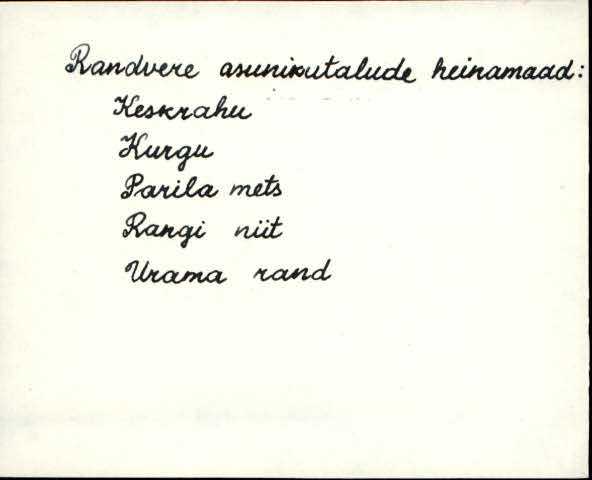 Randvere asunikutalude heinamaad:
Keskrahu
Kurgu
Parila mets
Rangi niit
Urama rand